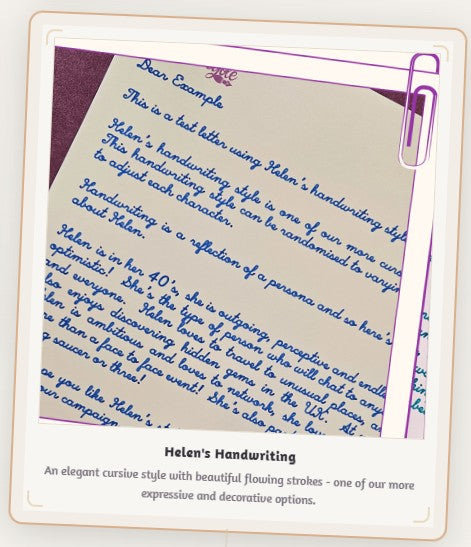 Dear Example
This is a test letter using Helen's handwriting
Helen's handwriting style is one of our more
This handwriting style can be randomised to
to adjust each character.
Handwriting is a reflection of a persona and so here's
about Helen.
Helen is in her 40's, she is outgoing, perceptive and
optimistic! She's the type of person who will chat to any
and everyone. Helen loves to travel to unusual places,
enjoys discovering hidden gems in the UK. At
is ambitious and loves to network, she
than a face to face event! She's also
saucer or three!
you like Helen's
our campaign
Helen's Handwriting
An elegant cursive style with beautiful flowing strokes - one of our more
expressive and decorative options.